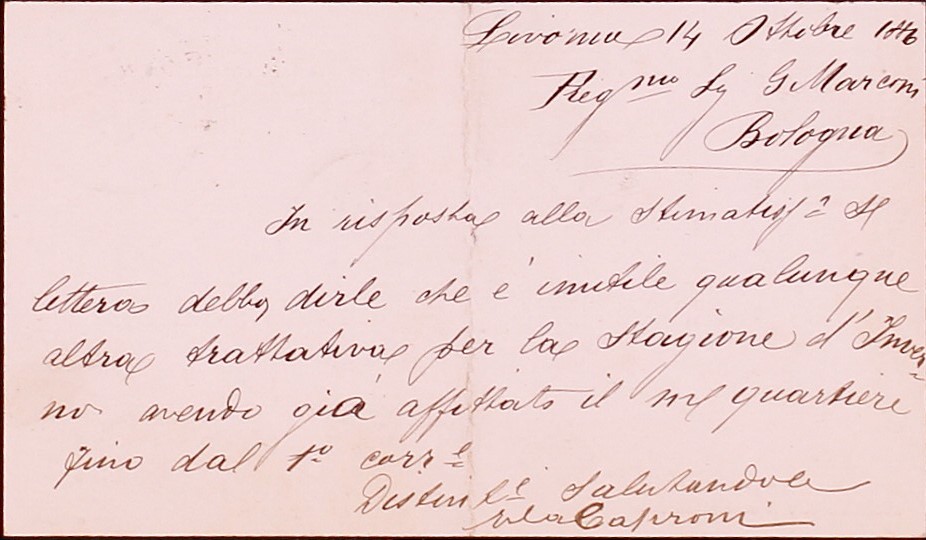 Livorno 14 Ottobre
Preg.mo Sig G Marconi
Bologna
In risposta alla stimatis.a
lettera debbo dirle che è inutile qualunque
altra trattativa per la Stagione d'Inver=
no avendo già affittato il quartiere
fino dal 1° corr.e
Distint.e Salutandola
Caproni